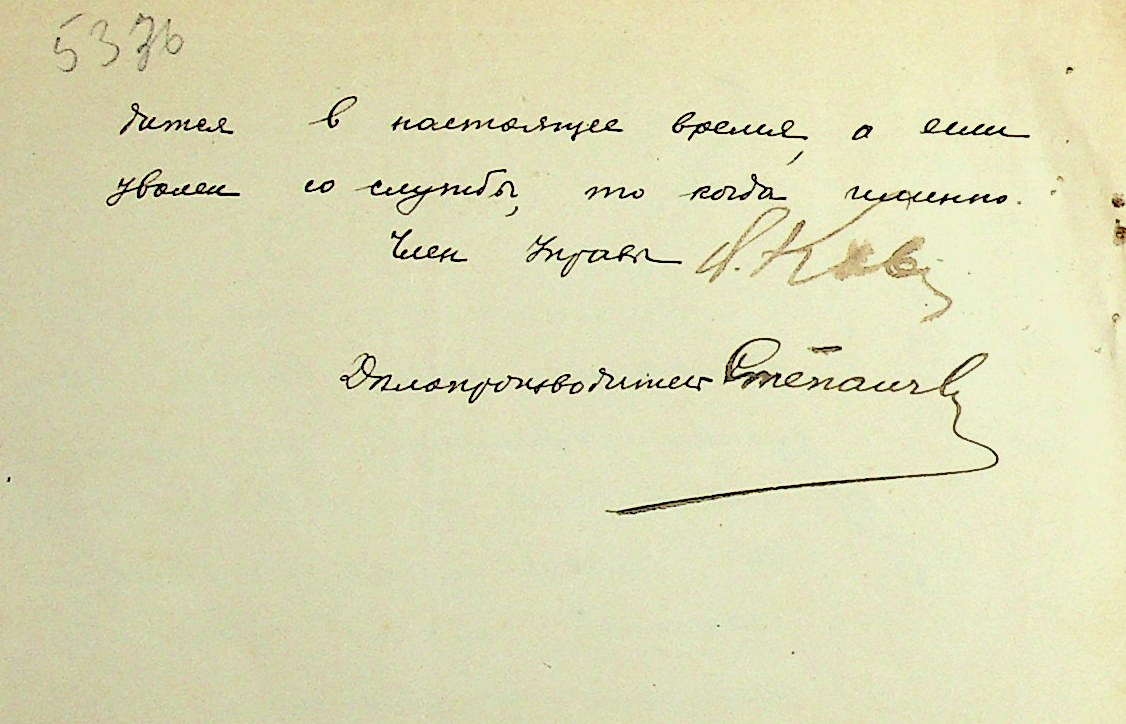 537б
дится в настоящее время, а если
уволен со службы, то когда именно.
Член Управы
Делопроизводитель Степанов